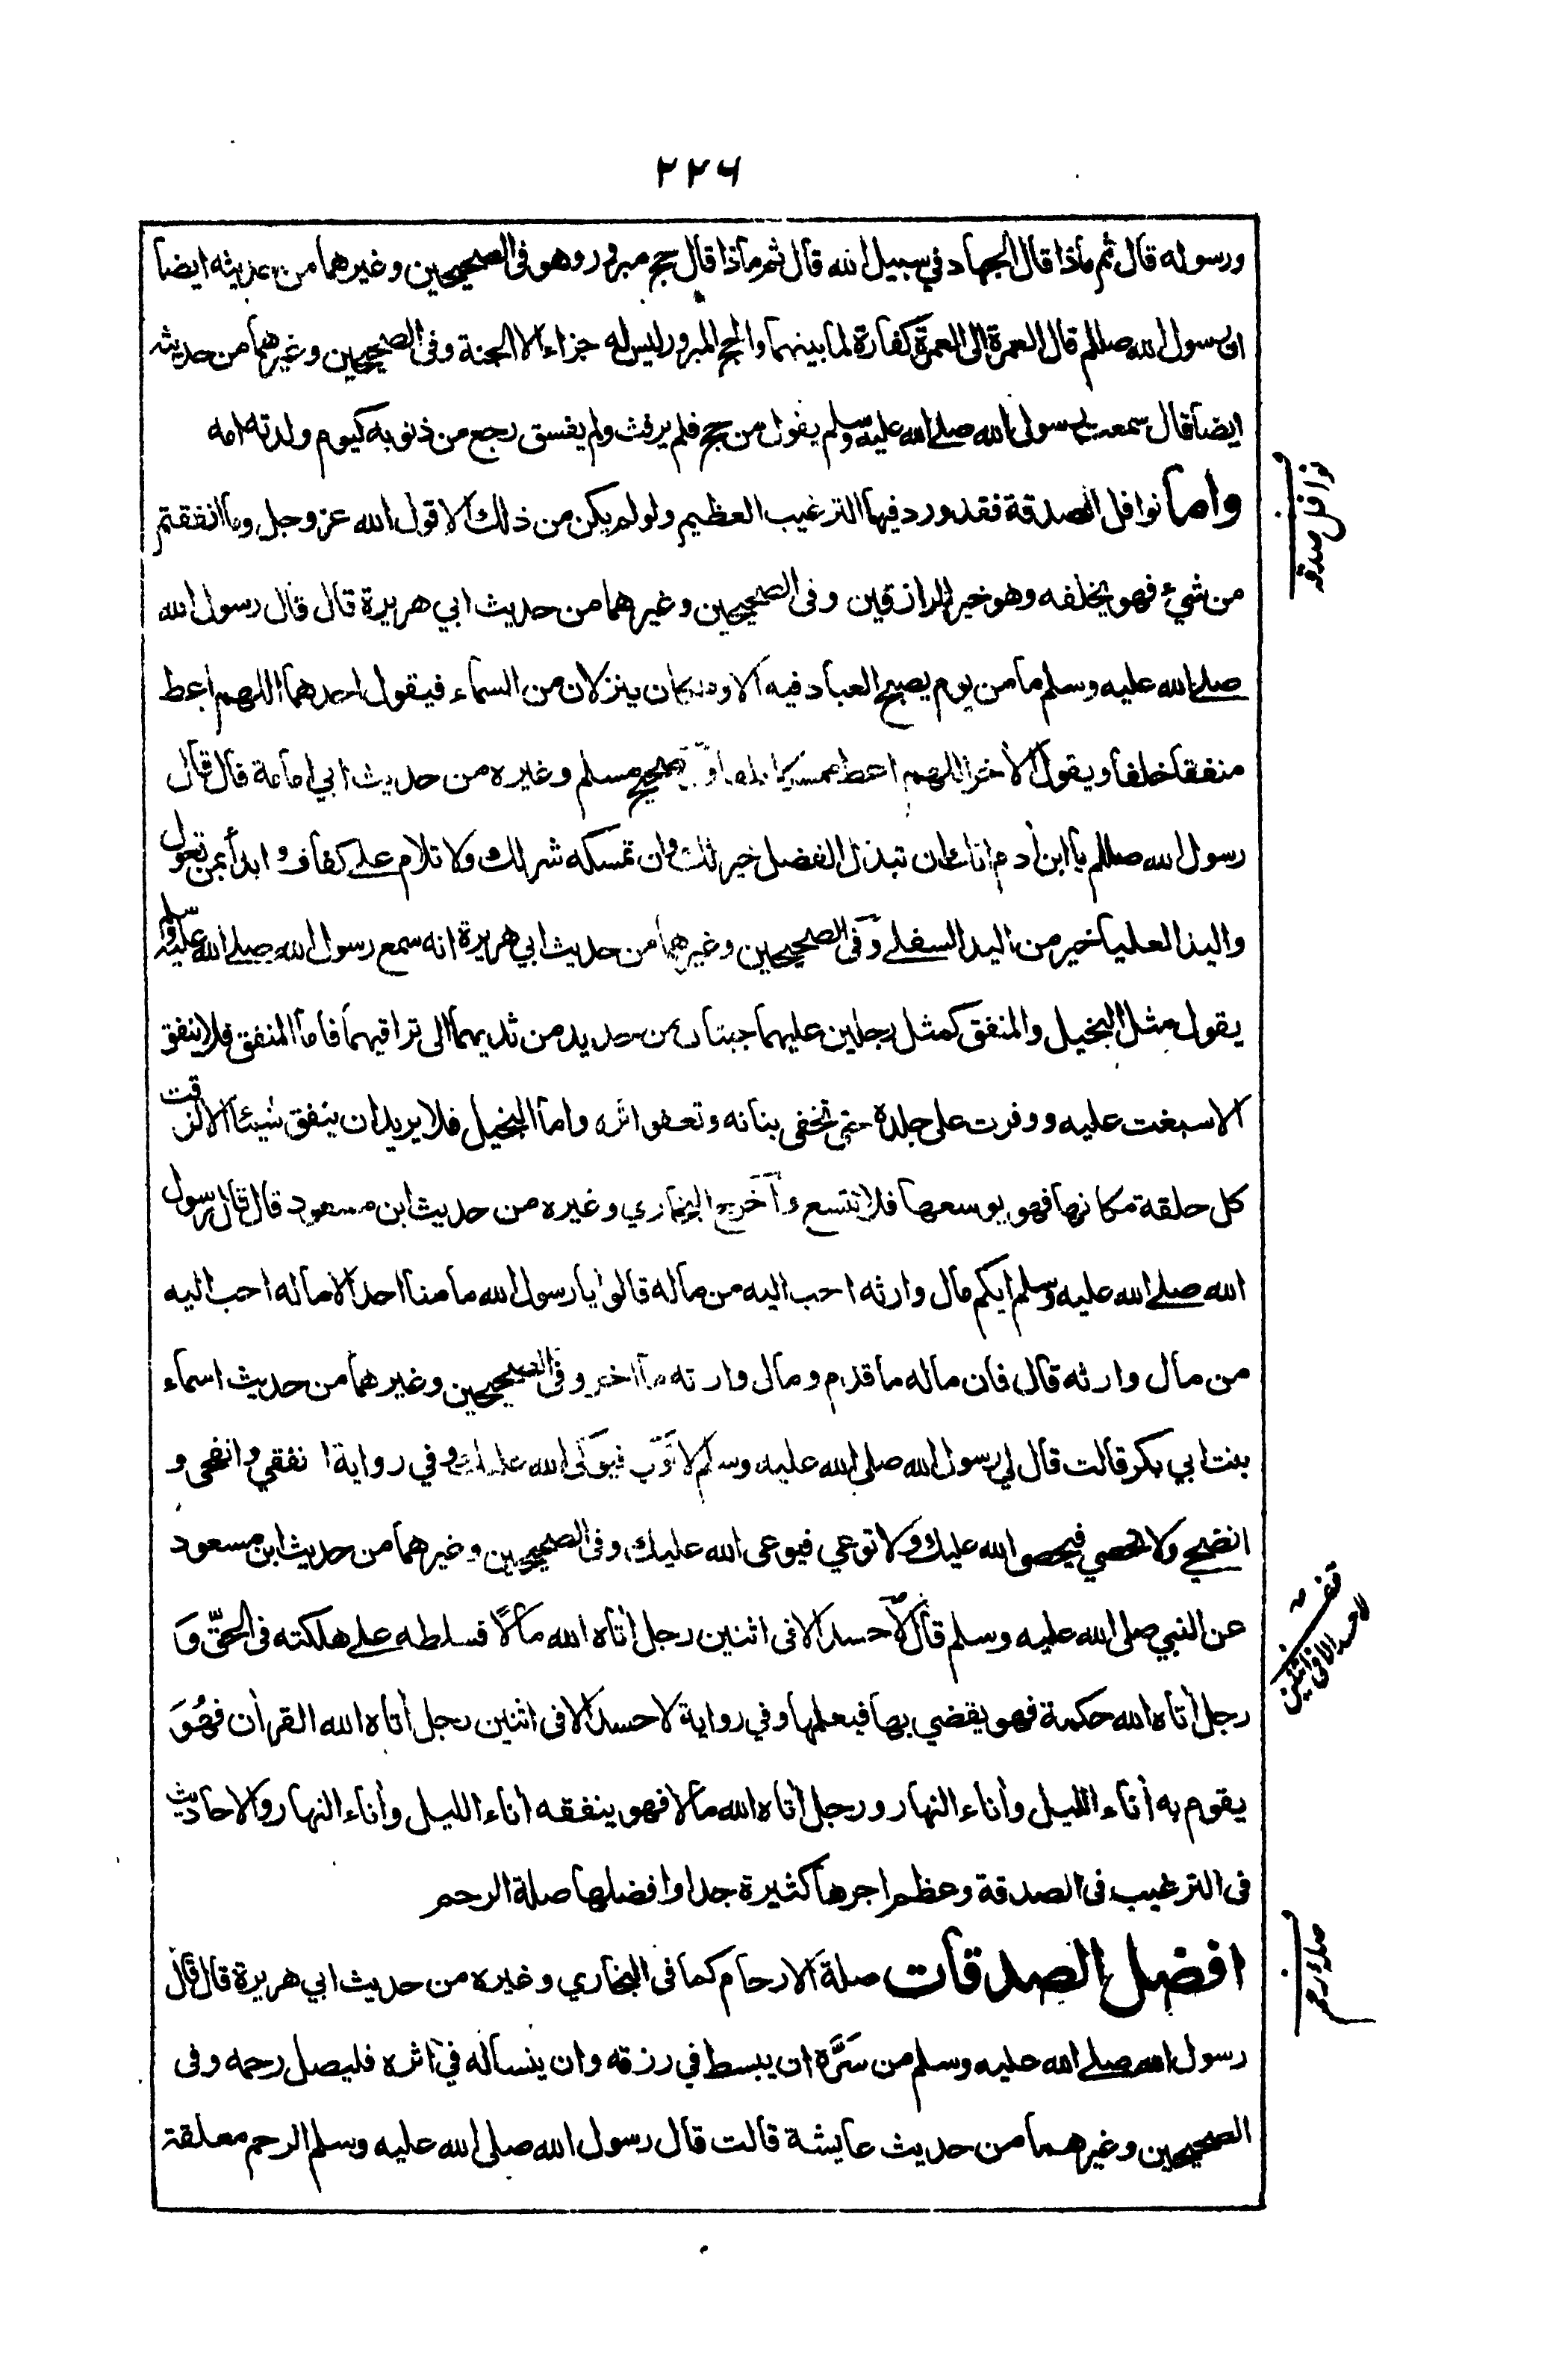 ٢٢٦
ورسوله قال ثم ماذا قال الجهاد في سبيل الله قال ثم ماذا قال حج مبرور وهو فى الصحيحين وغيرهما من حديثه ايضا
ان رسول الله صللم قال العمرة الى العمرة كفارة لما بينهما والحج المبرور ليس له جزاء الا الجنة وفى الصحيحين وغيرهما من حديثه
ايضا قال سمعت رسول الله صلے الله عليه وسلم يقول من حج فلم يرفث ولم يفسق رجع من ذنوبه كيوم ولدته امه
واما نوافل الصدقة فقد ورد فيها الترغيب العظيم ولو لم يكن من ذلك الا قول الله عز وجل وما انفقتم
من شيء فهو يخلفه وهو خير الرازقين وفى الصحيحين وغيرهما من حديث ابي هريرة قال قال رسول الله
صلے الله عليه وسلم ما من يوم يصبح العباد فيه الا وملكان ينزلان من السماء فيقول احدهما اللهم اعط
منفقا خلفا ويقول الاخر اللهم اعط ممسكا تلفا وفي صحيح مسلم وغيره من حديث ابي امامة قال قال
رسول الله صللم يا ابن أدم انك ان تبذل الفضل خير لك وان تمسكه شر لك ولا تلام علے كفاف وابدأ بمن تعول
واليد العليا خير من اليد السفلے وفى الصحيحين وغيرهما من حديث ابي هريرة انه سمع رسول الله صلے الله عليه وسلم
يقول مثل البخيل والمنفق كمثل رجلين عليهما جبتان من حديد من ثديهما الى تراقيهما فاما المنفق فلا ينفق
الا سبغت عليه ووفرت على جلده حتى تخفى بنانه وتعفو اثره واما البخيل فلا يريد ان ينفق شيئا الا لزقت
كل حلقة مكانها فهو يوسعها فلا تتسع وأخرج البخاري وغيره من حديث ابن مسعود قال قال رسول
الله صلے الله عليه وسلم ايكم مال وارثه احب اليه من ماله قالوا يا رسول الله ما منا احد الا ماله احب اليه
من مال وارثه قال فان ماله ما قدم ومال وارثه ما اخر وفى الصحيحين وغيرهما من حديث اسماء
بنت ابي بكر قالت قال لي رسول الله صلى الله عليه وسلم لا توكي فيوكى الله عليك وفي رواية انفقي وانفحى و
انضحي ولا تحصي فيحصى الله عليك ولا توعي فيوعى الله عليك وفى الصحيحين وغيرهما من حديث ابن مسعود
عن النبي صلى الله عليه وسلم قال لا حسد الا فى اثنين رجل أتاه الله مالًا فسلطه علے هلكته فى الحقّ وَ
رجل أتاه الله حكمة فهو يقضي بها فيعلمها وفي رواية لا حسد الا فى اثنين رجل أتاه الله القرأن فهُوَ
يقوم به أناء الليل وأناء النهار ورجل أتاه الله مالا فهو ينفقه أناء الليل وأناء النهار والاحاديث
فى الترغيب فى الصدقة وعظم اجرها كثيرة جدا وافضلها صلة الرحم
افضل الصدقات صلة الارحام كما فى البخاري وغيره من حديث ابي هريرة قال قال
رسول الله صلے الله عليه وسلم من سَرَّه ان يبسط في رزقه وان ينسأ له في اثره فليصل رحمه وفى
الصحيحين وغيرهما من حديث عايشة قالت قال رسول الله صلى الله عليه وسلم الرحم معلقة
نوافل صدقہ
لا حسد الا فى اثنين
صلۂ رحم